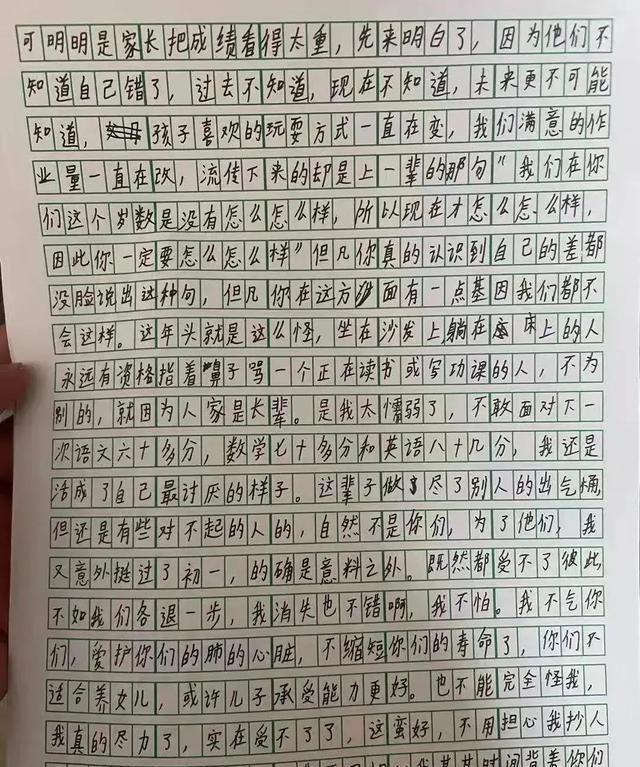 可明明是家长把成绩看得太重，先来明白了，因为他们不
知道自己错了，过去不知道，现在不知道，未来更不可能
知道，孩子喜欢的玩耍方式一直在变，我们满意的作
业量一直在改，流传下来的却是上一辈的那句“我们在你
们这个岁数是没有怎么怎么样，所以现在才怎么怎么样，
因此你一定要怎么怎么样”但凡你真的认识到自己的差都
没脸说出这种句，但凡你在这方面有一点基因我们都不
会这样。这年头就是这么怪，坐在沙发上躺在床上的人
永远有资格指着鼻子骂一个正在读书或写功课的人，不为
别的，就因为人家是长辈。是我太懦弱了，不敢面对下一
次语文六十多分，数学七十多分和英语八十几分，我还是
活成了自己最讨厌的样子。这辈子做尽了别人的出气桶，
但还是有些对不起的人的，自然不是你们，为了他们，我
又意外挺过了初一，的确是意料之外。既然都受不了彼此，
不如我们各退一步，我消失也不错啊，我不怕。我不气你
们，爱护你们的肺的心脏，不缩短你们的寿命了，你们不
适合养女儿，或许儿子承受能力更好。也不能完全怪我，
我真的尽力了，实在受不了了，这蛮好，不用担心我抄人
时间背着你们